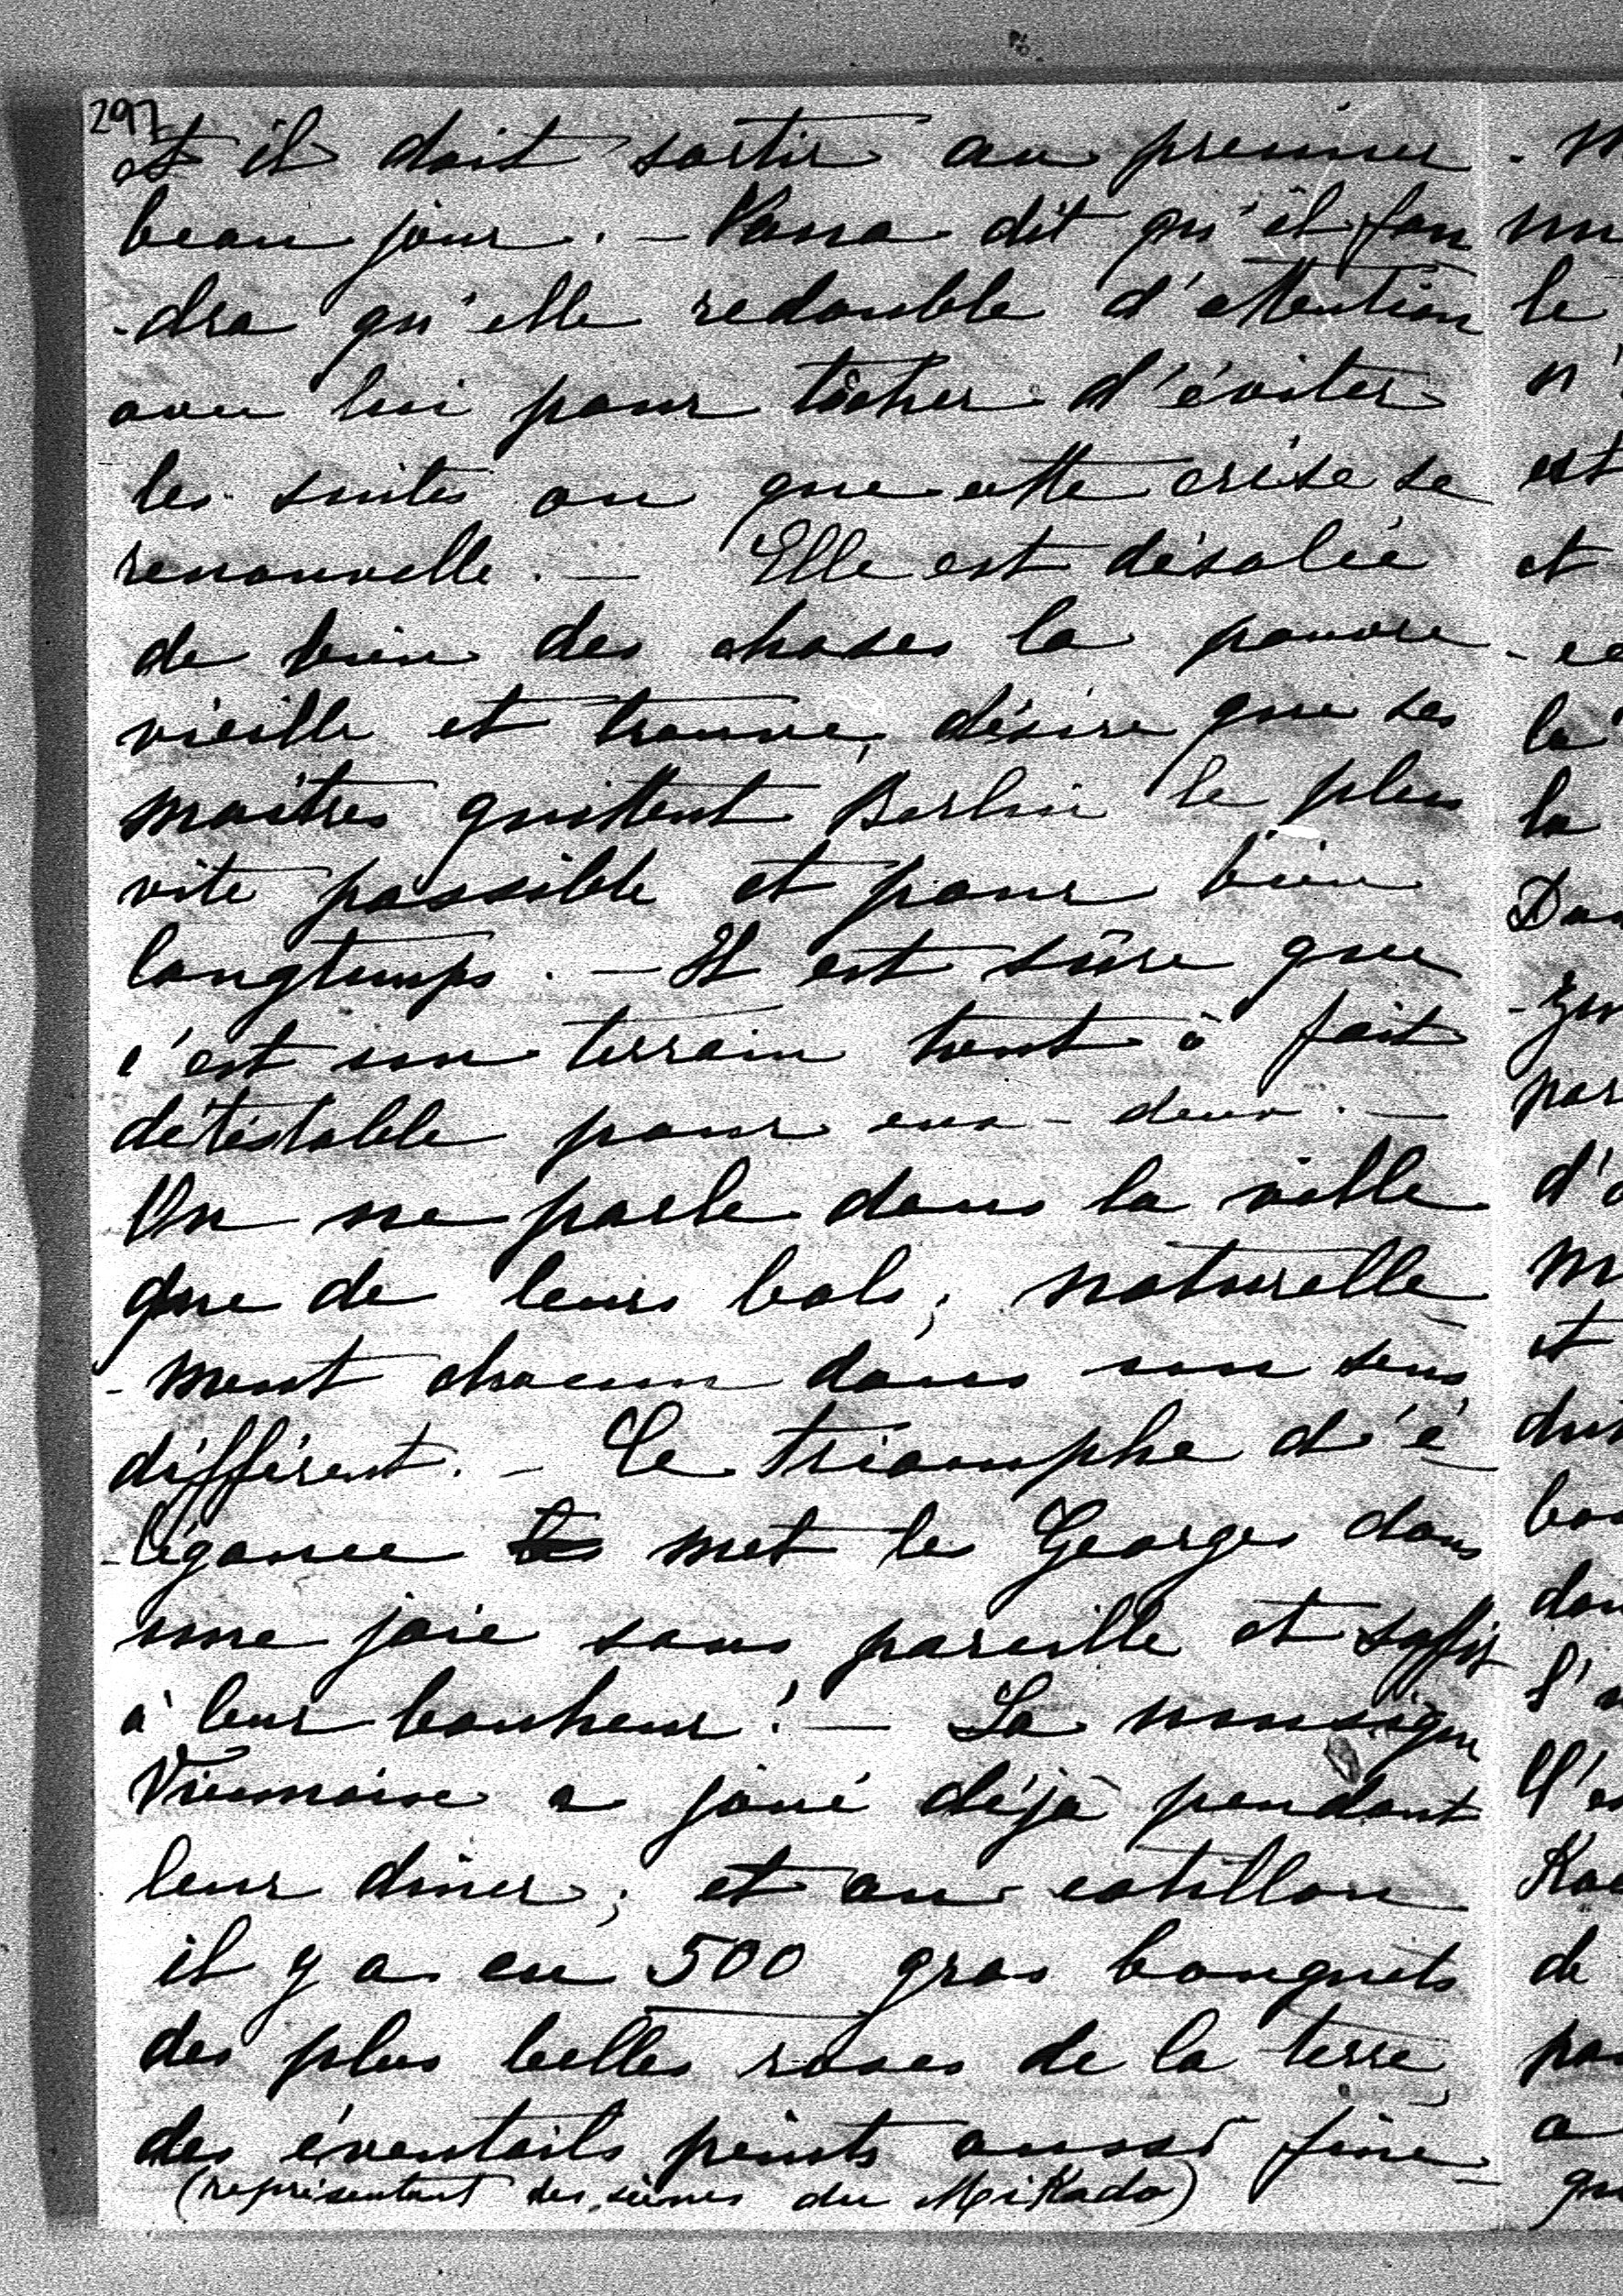 297
et il doit sortir au premier
beau jour. — Vassa dit qu'il fau
-dra qu'elle redouble d'attention
avec lui pour tâcher d'éviter
les suites ou que cette crise se
renouvelle. — Elle est désolée
de bien des choses la pauvre
vieille et trouve, désire que ses
maîtres quittent Berlin le plus
vite possible et pour bien
longtemps. — Il est sûre que
c'est un terrain tout à fait
détéstable pour eux-deux. —
On ne parle dans la ville
que de leurs bals; naturelle
-ment chacun dans son sens
différent. — Ce triomphe d'é
-légance met les Georges dans
une joie sans pareille et suffit
à leur bonheur! — La musique
Viennoise a joué déjà pendant
leur diner; et au cotillon
il y a eu 500 gros bouquets
des plus belles roses de la terre,
des éventails peints aussi fine-
(représentant des scènes du MiKado)